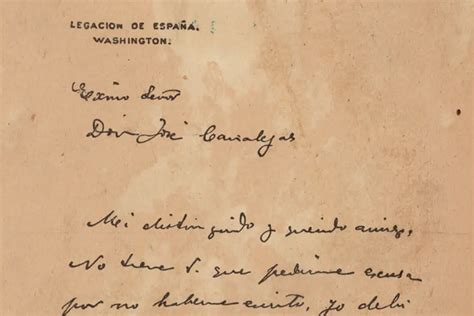 LEGACION DE ESPAÑA.
WASHINGTON.
Exmo Señor
Don José Canalejas
Mi distinguido y querido amigo,
No tiene V. que pedirme excusa
por no haberme escrito, yo debí